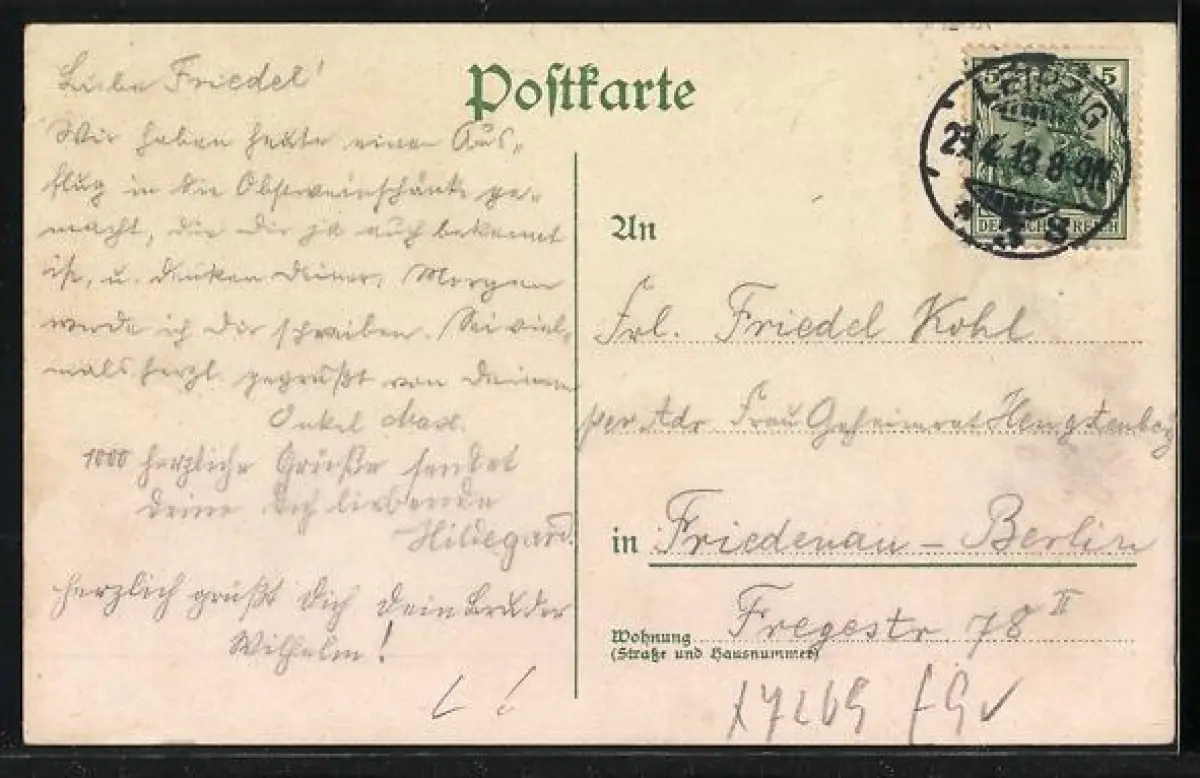 Liebe Friedel!
Wir haben heute einen Aus-
flug in die Obstweinschänke ge-
macht, die Dir ja auch bekannt
ist, u. denken Deiner. Morgen
werde ich Dir schreiben. Sei viel-
mals herzl. gegrüßt von Deinem
Onkel Max.
1000 herzliche Grüße sendet
Deine Dich liebende
Hildegard.
Herzlich grüßt Dich Dein Bruder
Wilhelm!
Postkarte
5 5
DEUTSCHES REICH
LEIPZIG
4.13 8-9N
* 3 s
An
Frl. Friedel Kohl
per Adr. Frau Geheimrat Hengstenberg
in Friedenau - Berlin
Wohnung Fregestr 78 II
(Straße und Hausnummer)